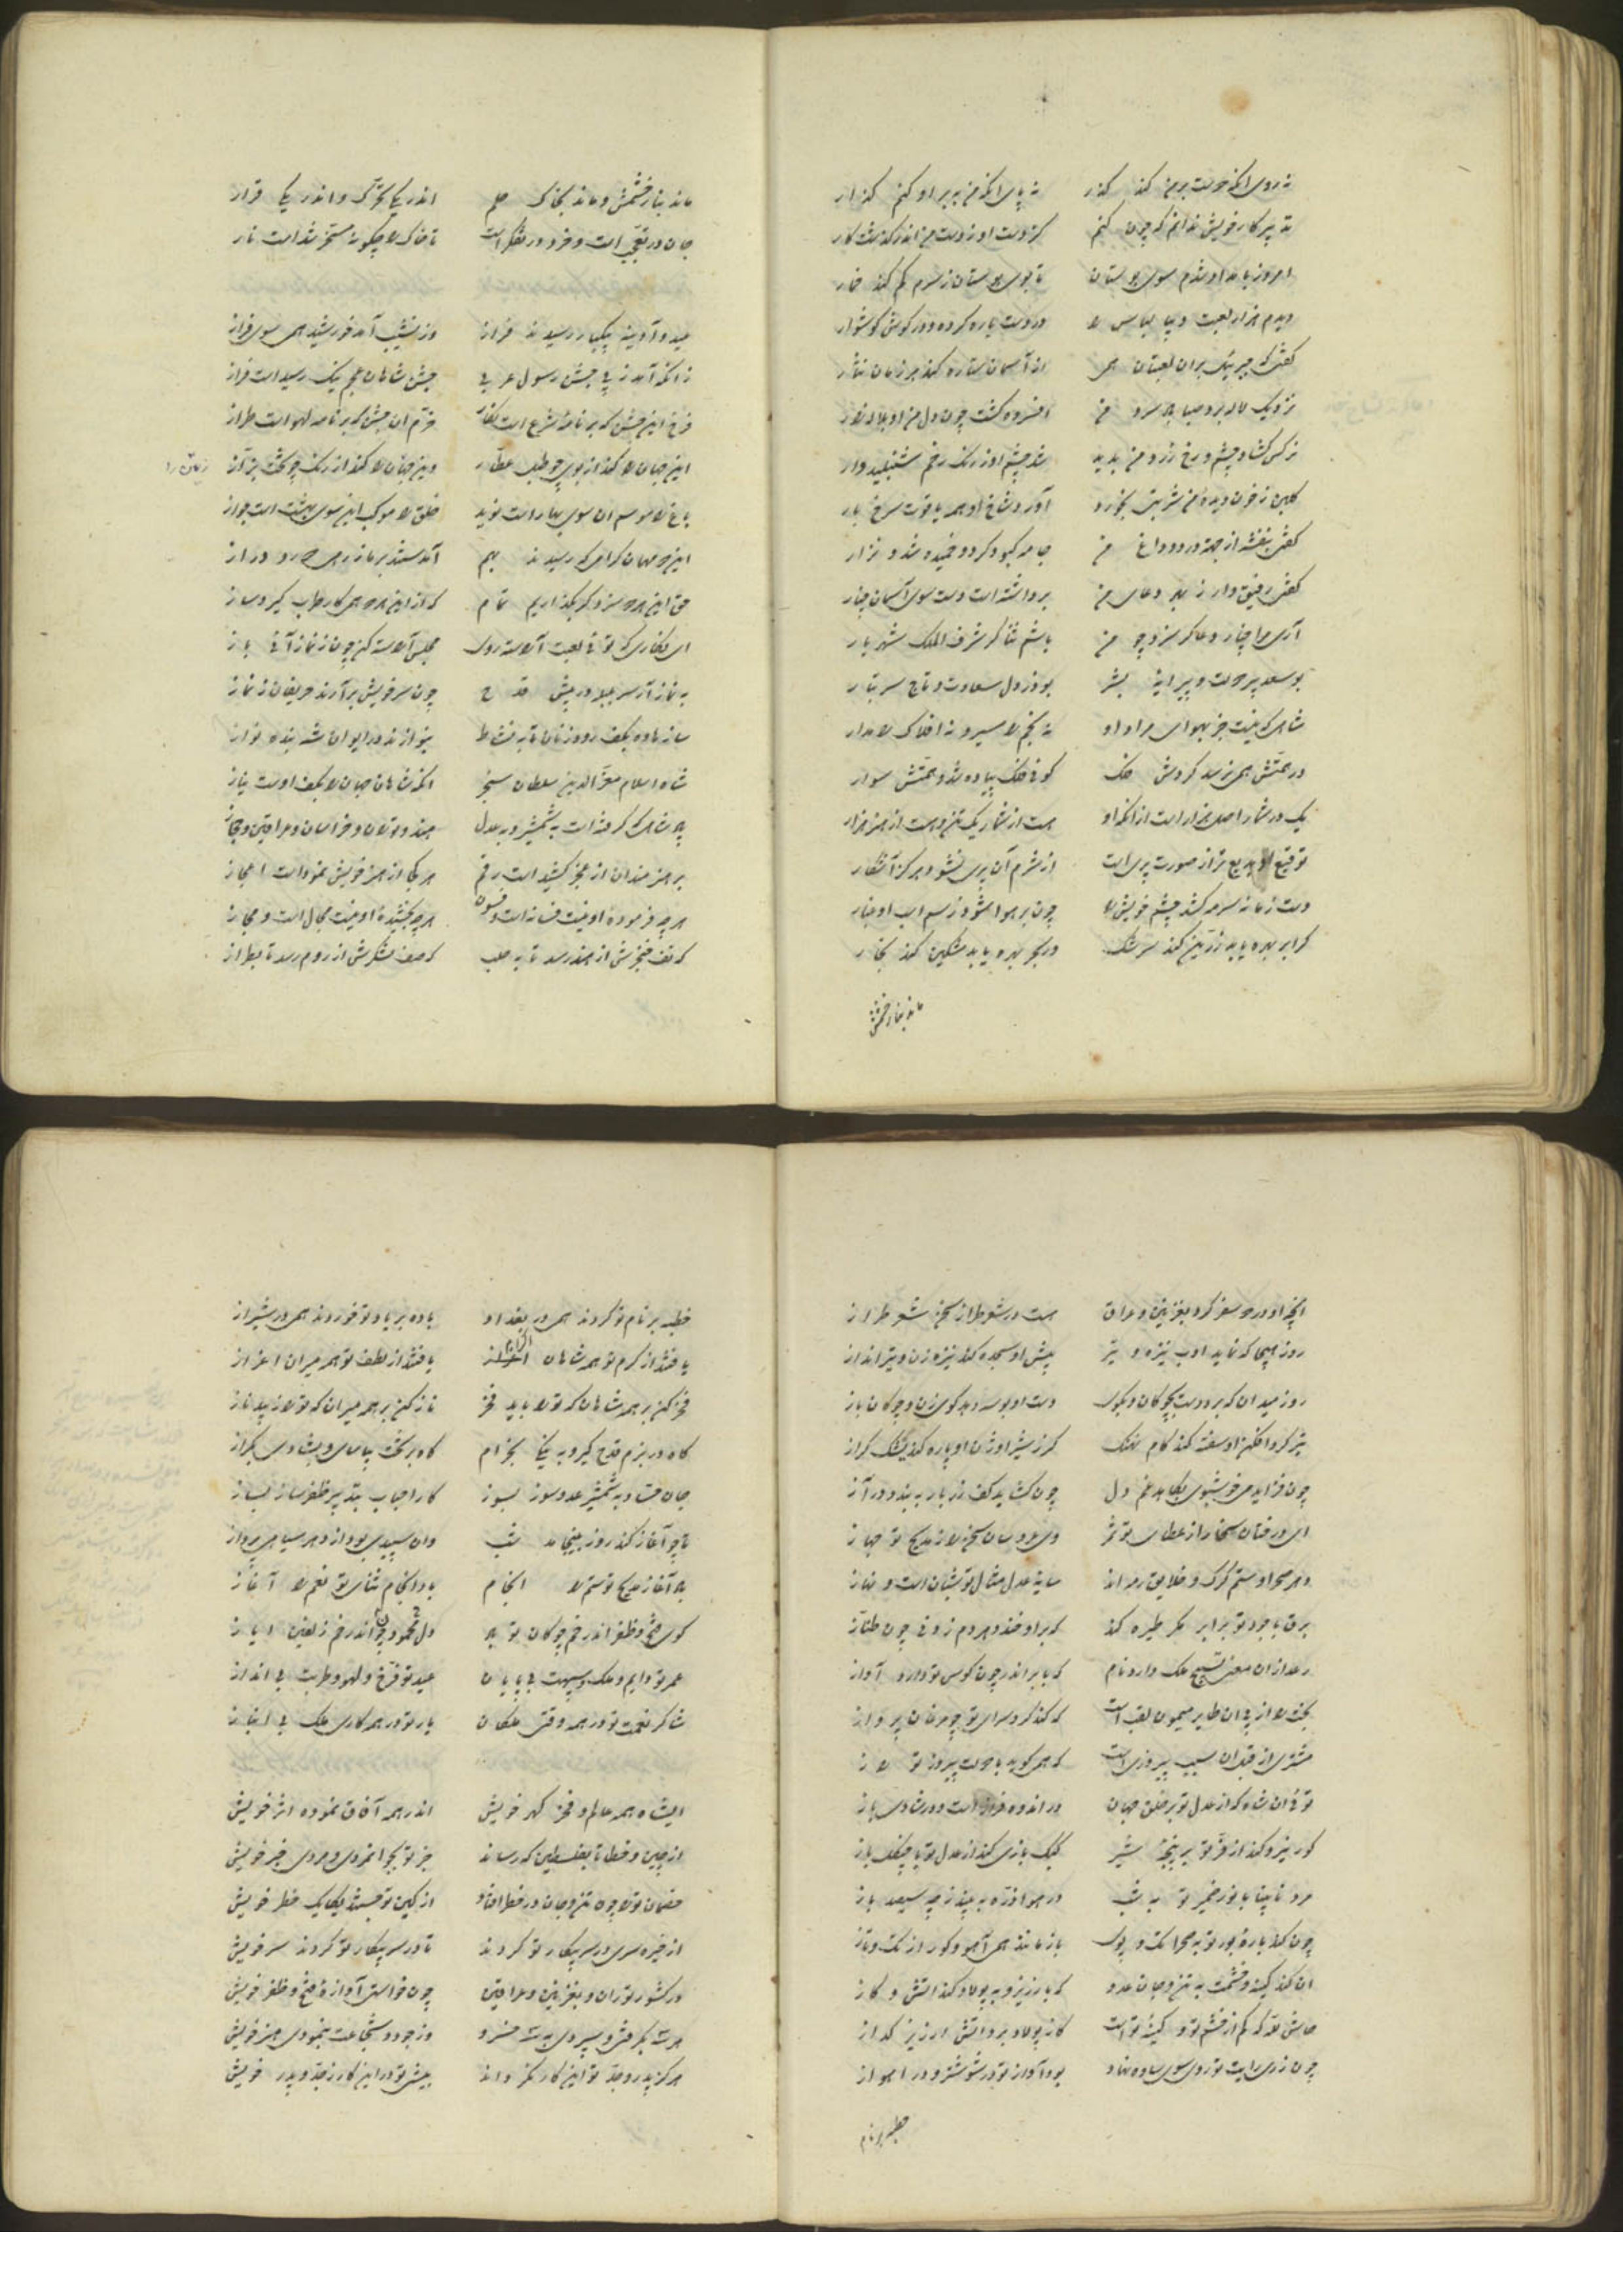 نه روی آنکه دوست بر من کند گذر نه پای آنکه من به بر او کنم گذار
تدبیر کار خویش ندانم که چون کنم کز دست او ز دست من اندر گذشت کار
امروز بامداد شدم سوی بوستان تا بوی بوستان ز سرم کم کند خمار
دیدم هزار لعبت دیبا لباس را در دست یاره کرده و در گوش گوشوار
گفتی که چیره‌یک بران لعبتان همی از آسمان ستاره کند هر زمان نثار
نزدیک لاله برد صبا باد سرد من افسرده گشت چون دل من او بلاله‌زار
نرگس گشاد چشم و رخ زرد من بدید شد چشم او ز رنگ رخم شنبلید وار
گلبن ز خون دیده من شربتی بخورد آورد شاخ او همه یاقوت سرخ بار
گفتی بنفشه از جهة درد و داغ من جامه کبود کرد و خمیده شد و نزار
گفتی رفیق وار ز بهر دعای من برداشته است دست سوی آسمان چنار
آری مرا چنار دعا گر سزد چو من باشم ثناگر شرف الملک شهریار
بوسعد پر دولت و پیرایه بشر بوذر دل سعادت و تاج سر تبار
شاهی که نیست جز بهوای مراد او نه نجم را مسیر و نه افلاک را مدار
در همتش همی نرسد گردش فلک گوئی فلک پیاده شد و همتش سوار
یک در شمار اصل هزار است از آنکه او هست از شمار یک تن و هست از هنر هزار
توقیع او بدیع‌تر از صورت پری است از شرم آن پری نشود هرگز آشکار
دست زمانه سرمه کشد چشم خویش را چون بر هوا شود ز سم اسب او غبار
گر ابر بهره یابد زرین کند سرشک ور بحر بهره یابد مشکین کند بخار
ماند بنار خشمش
ماند بنار خشمش و ماند بخاک حلم اندر یکی تحرک و اندر یکی قرار
جان در تعجب است و خرد در تفکر است تا خاک را چگونه مسخر شد است نار
عید و آدینه بیکبار رسیدند فراز وز نشیب آمد خورشید همی سوی فراز
زانکه آمد ز پی جشن رسول عربی جشن شاهان عجم نیک رسید است فراز
فرخ این جشن که بر نامه شرع است نگار خرم آن جشن که بر نامه لهو است طراز
این جهان را کند از بوی چو طبله عطار وین جهان را کند از رنگ چو تخت بزاز
باغ را موسم آن سوی بهار است نوید خلق را موکب این سوی بهشت است جواز
این دو مهمان گرامی که رسیدند بهم آمدستند بر ما ز ره دور و دراز
حق این هر دو سزد گر بگذاریم تمام که از این هر دو همی کار طرب گیرد ساز
ای نگاری که توئی لعبت آراسته روی مجلس آراسته کن چون ز نماز آئی باز
به نماز آر سر بلبله در پیش قدح چون سر خویش برآرند حریفان ز نماز
ساز باده بکف و رود زنان تا به نشاط بنوازند در ایوان شه بنده نواز
شاه اسلام معز الدین سلطان سنجر آنکه شاهان جهان را بکف اوست نیاز
پادشاهی که گرفته است به شمشیر و به عدل هند و توران و خراسان و عراقین و حجاز
بر هنرمندان از عجز کشید است رقم هر کجا از هنر خویش نمود است اعجاز
هر چه فرموده او نیست فسانه است و فسون هر چه بخشیده او نیست محال است و مجاز
که تف خنجرش از هند رسد تا به حلب که صف لشکرش از روم رسد تا بطراز
آنچه او در دو سفر کرد بغزنین و عراق هست در شعر طرازی سخن شعر طراز
روز هیجا که نماید ادب نیزه و تیر پیش او سجده کند نیزه زن و تیر انداز
روز میدان که برد دست بچوگان و بگوی دست او بوسه دهد گوی زن و چوگان باز
تیر گردافکن او سفته کند کام نهنگ گرز شیر اوژن او پاره کند یشک گراز
چون فزاید می خوشبوی بکاهد غم دل چون گشاید کف زربار ببندد در آز
ای درختان سخا را از عطای تو ثمر وی عروسان سخن را ز مدیح تو جهاز
دهر صحرا و ستم گرگ و خلایق رمه اند سایه عدل مثال تو شبان است و نهاز
برق با جود تو بر ابر مگر طیره کند که بر او خندد هر دم ز وفی چون طناز
رعد از آن معنی تسبیح ملک دارد نام که بابر اندر چون کوس تو دارد آواز
بخت را از پی آن طایر میمون لقب است که کند گرد سرای تو چو مرغان پرواز
مشتری از قبل آن سبب پیروزی است که همی گوید با دولت پیروز تو راز
توئی آن شاه که از عدل تو بر خلق جهان در اندوه فراز است و در شادی باز
گور نیرو کند از فر تو بر پنجه شیر کبک بازی کند از عدل تو با چنگل باز
مرد نابینا با نور ضمیر تو به شب در هوا ذره به بیند ز چه سیصد باز
چون کند باره بور تو به صحرا تک و پوی باز مانند همی آهو و گور از تک و تاز
آن کند کینه و خشمت به تن و جان عدو که بارزیز و به پولاد کند آتش و گاز
حاش لله که کم از خشم تو و کینه تو است گاز پولاد بر و آتش ارزیز گداز
چون ز ری رایت تو روی سوی ساوه نهاد بود آواز تو در شوشتر و در اهواز
خطبه بر نام
خطبه بر نام تو کردند همی در بغداد باده بر یاد تو خوردند همی در شیراز
یافتند از کرم تو همه شاهان اکرام یافتند از لطف تو همه میران اعزاز
فخر کن بر همه شاهان که تو را باید فخر ناز کن بر همه میران که تو را زیبد ناز
گاه در بزم قدح گیر و به نیکی بخرام گاه بر تخت بپاس و بشادی بگراز
جان حساد به شمشیر عدوسوز بسوز کار احباب بتدبیر ظفرساز بساز
تا چو آغاز کند روز بینجامد شب وان سپیدی بود از دهر سیاهی پرداز
باد آغاز مدیح تو ستم را انجام باد انجام ثنای تو نعم را آغاز
گوی فتح و ظفر اندر خم چوگان تو باد دل محمود چو اندر خم زلفین ایاز
عمر تو دایم و ملک و سپهت بی پایان عید تو فرخ و لهو و طربت بی انداز
شاکر نعمت تو در همه وقتی ملکان یار تو در همه کاری ملک بی انباز
ایشاه همه عالم و فخر گهر خویش اندر همه آفاق نموده اثر خویش
از چین و خطا تا بفلسطین که رساند جز تو بجوانمردی و مردی خبر خویش
خصمان تو را چون تن و جان در خطر افتاد از کین تو جستند یکایک خطر خویش
از خیره سری در سر پیکار تو کردند تا در سر پیکار تو کردند سر خویش
در کشور توران و بغزنین و عراقین چون خواستی آوازه فتح و ظفر خویش
هر سه بگرفتی و سپردی به سه خسرو وز جود و شجاعت بنمودی هنر خویش
هرگز پدر و جد تو این کار نکردند بیشی تو در این کار ز جد و پدر خویش